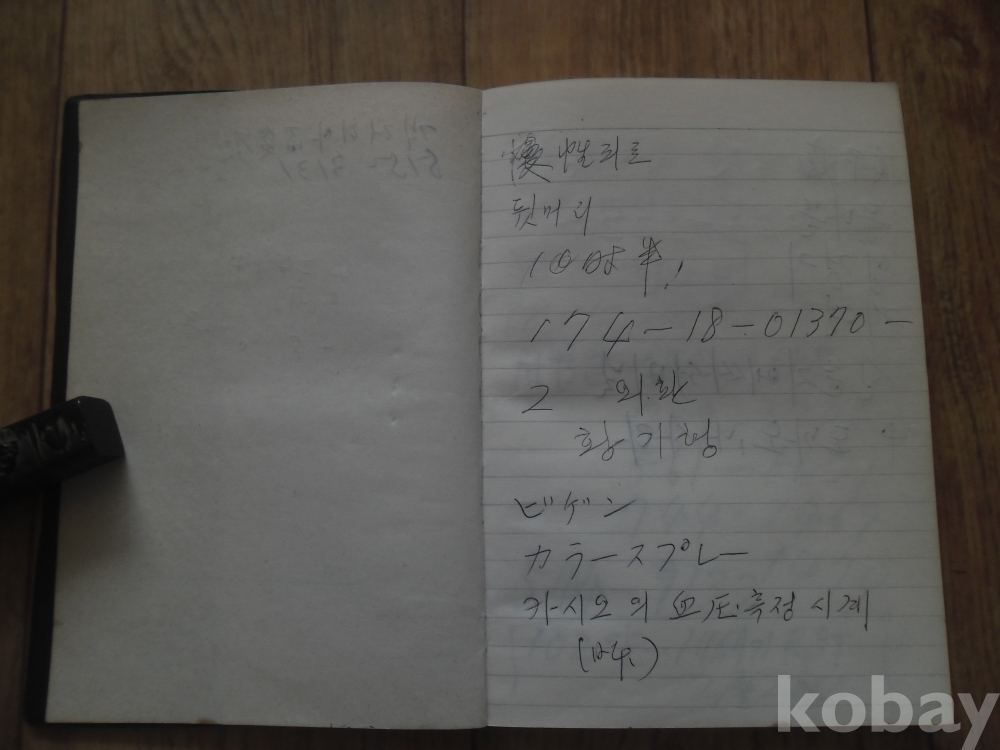 慢性피로
뒷머리
10時半!
174-18-01370-
2 외환
황기형
ビゲン
カラースプレー
카시오의 血圧측정시계
kobay